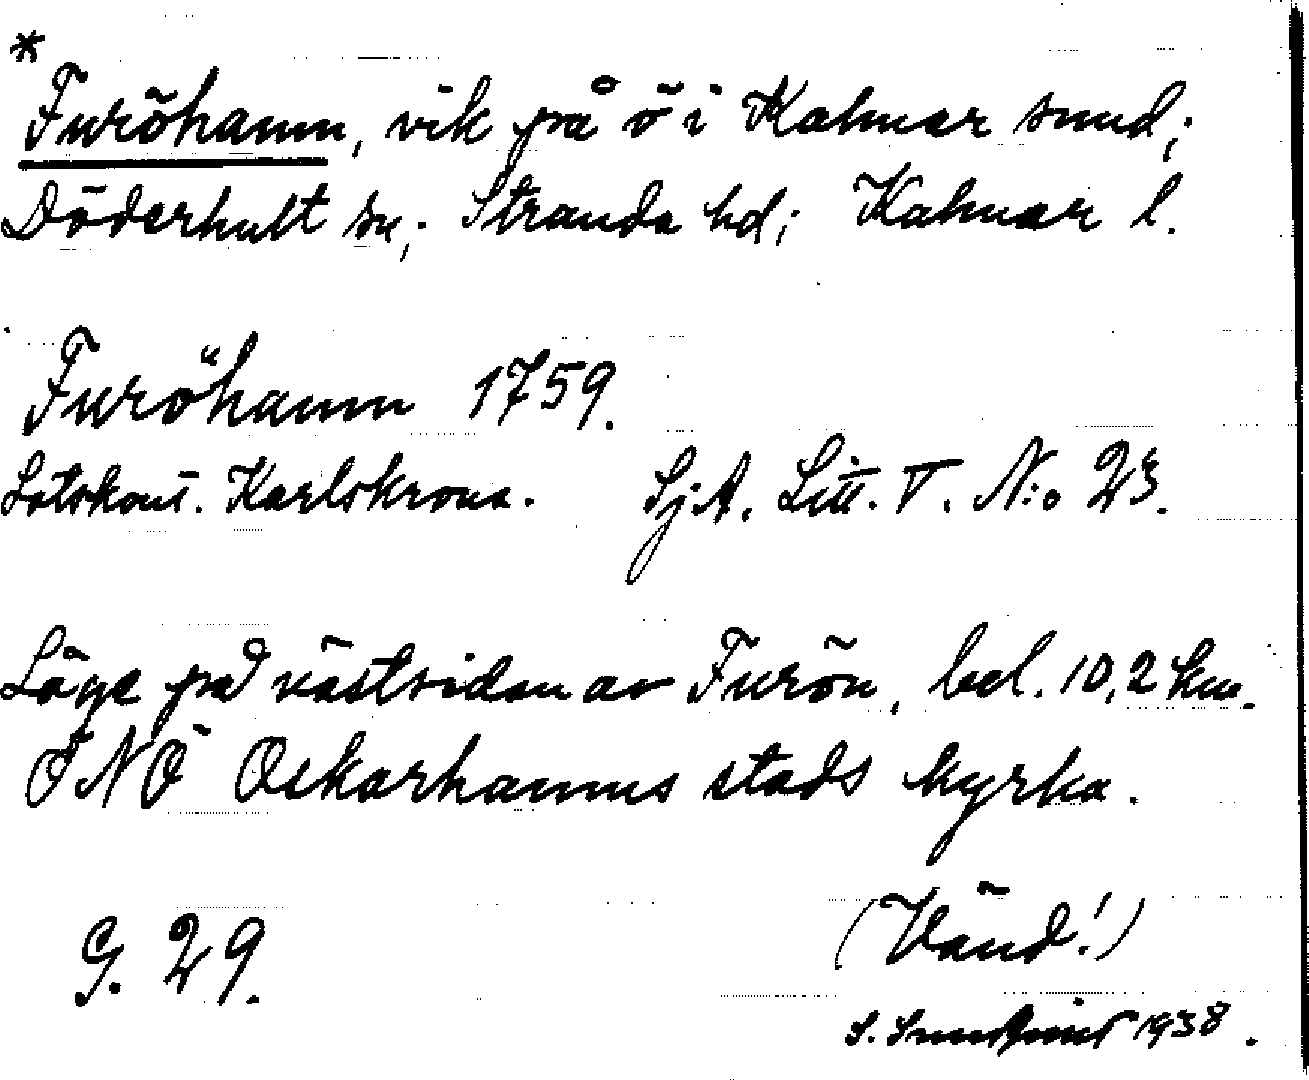 *
Furöhamn, vik på ö i Kalmar sund;
Döderhult sn; Stranda hd; Kalmar l.
Furöhamn 1759.
Lotskont. Karlskrona. SjA. Litt. T. N:o 23.
Läge på västsidan av Furön, bel. 10,2 km.
ONO Oskarhamns stads kyrka.
G. 29.
(Vänd!)
S. 1938.